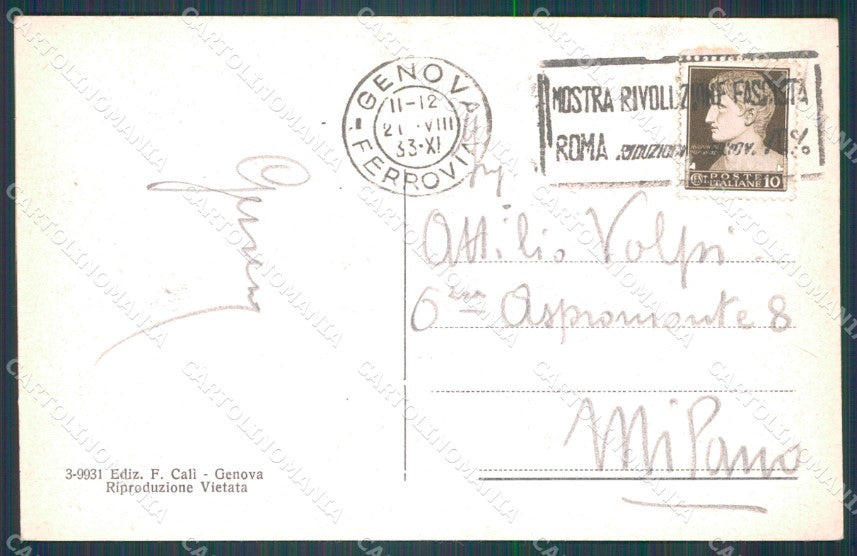 GENOVA
11-12
21 · VIII
33·XI
FERROVIA
MOSTRA RIVOLUZIONE FASCISTA
ROMA RIDUZIONI 70%
POSTE
ITALIANE 10
Attilio Volpi
Aspromonte 8
Milano
3-9931 Ediz. F. Calì - Genova
Riproduzione Vietata
CARTOLINOMANIA